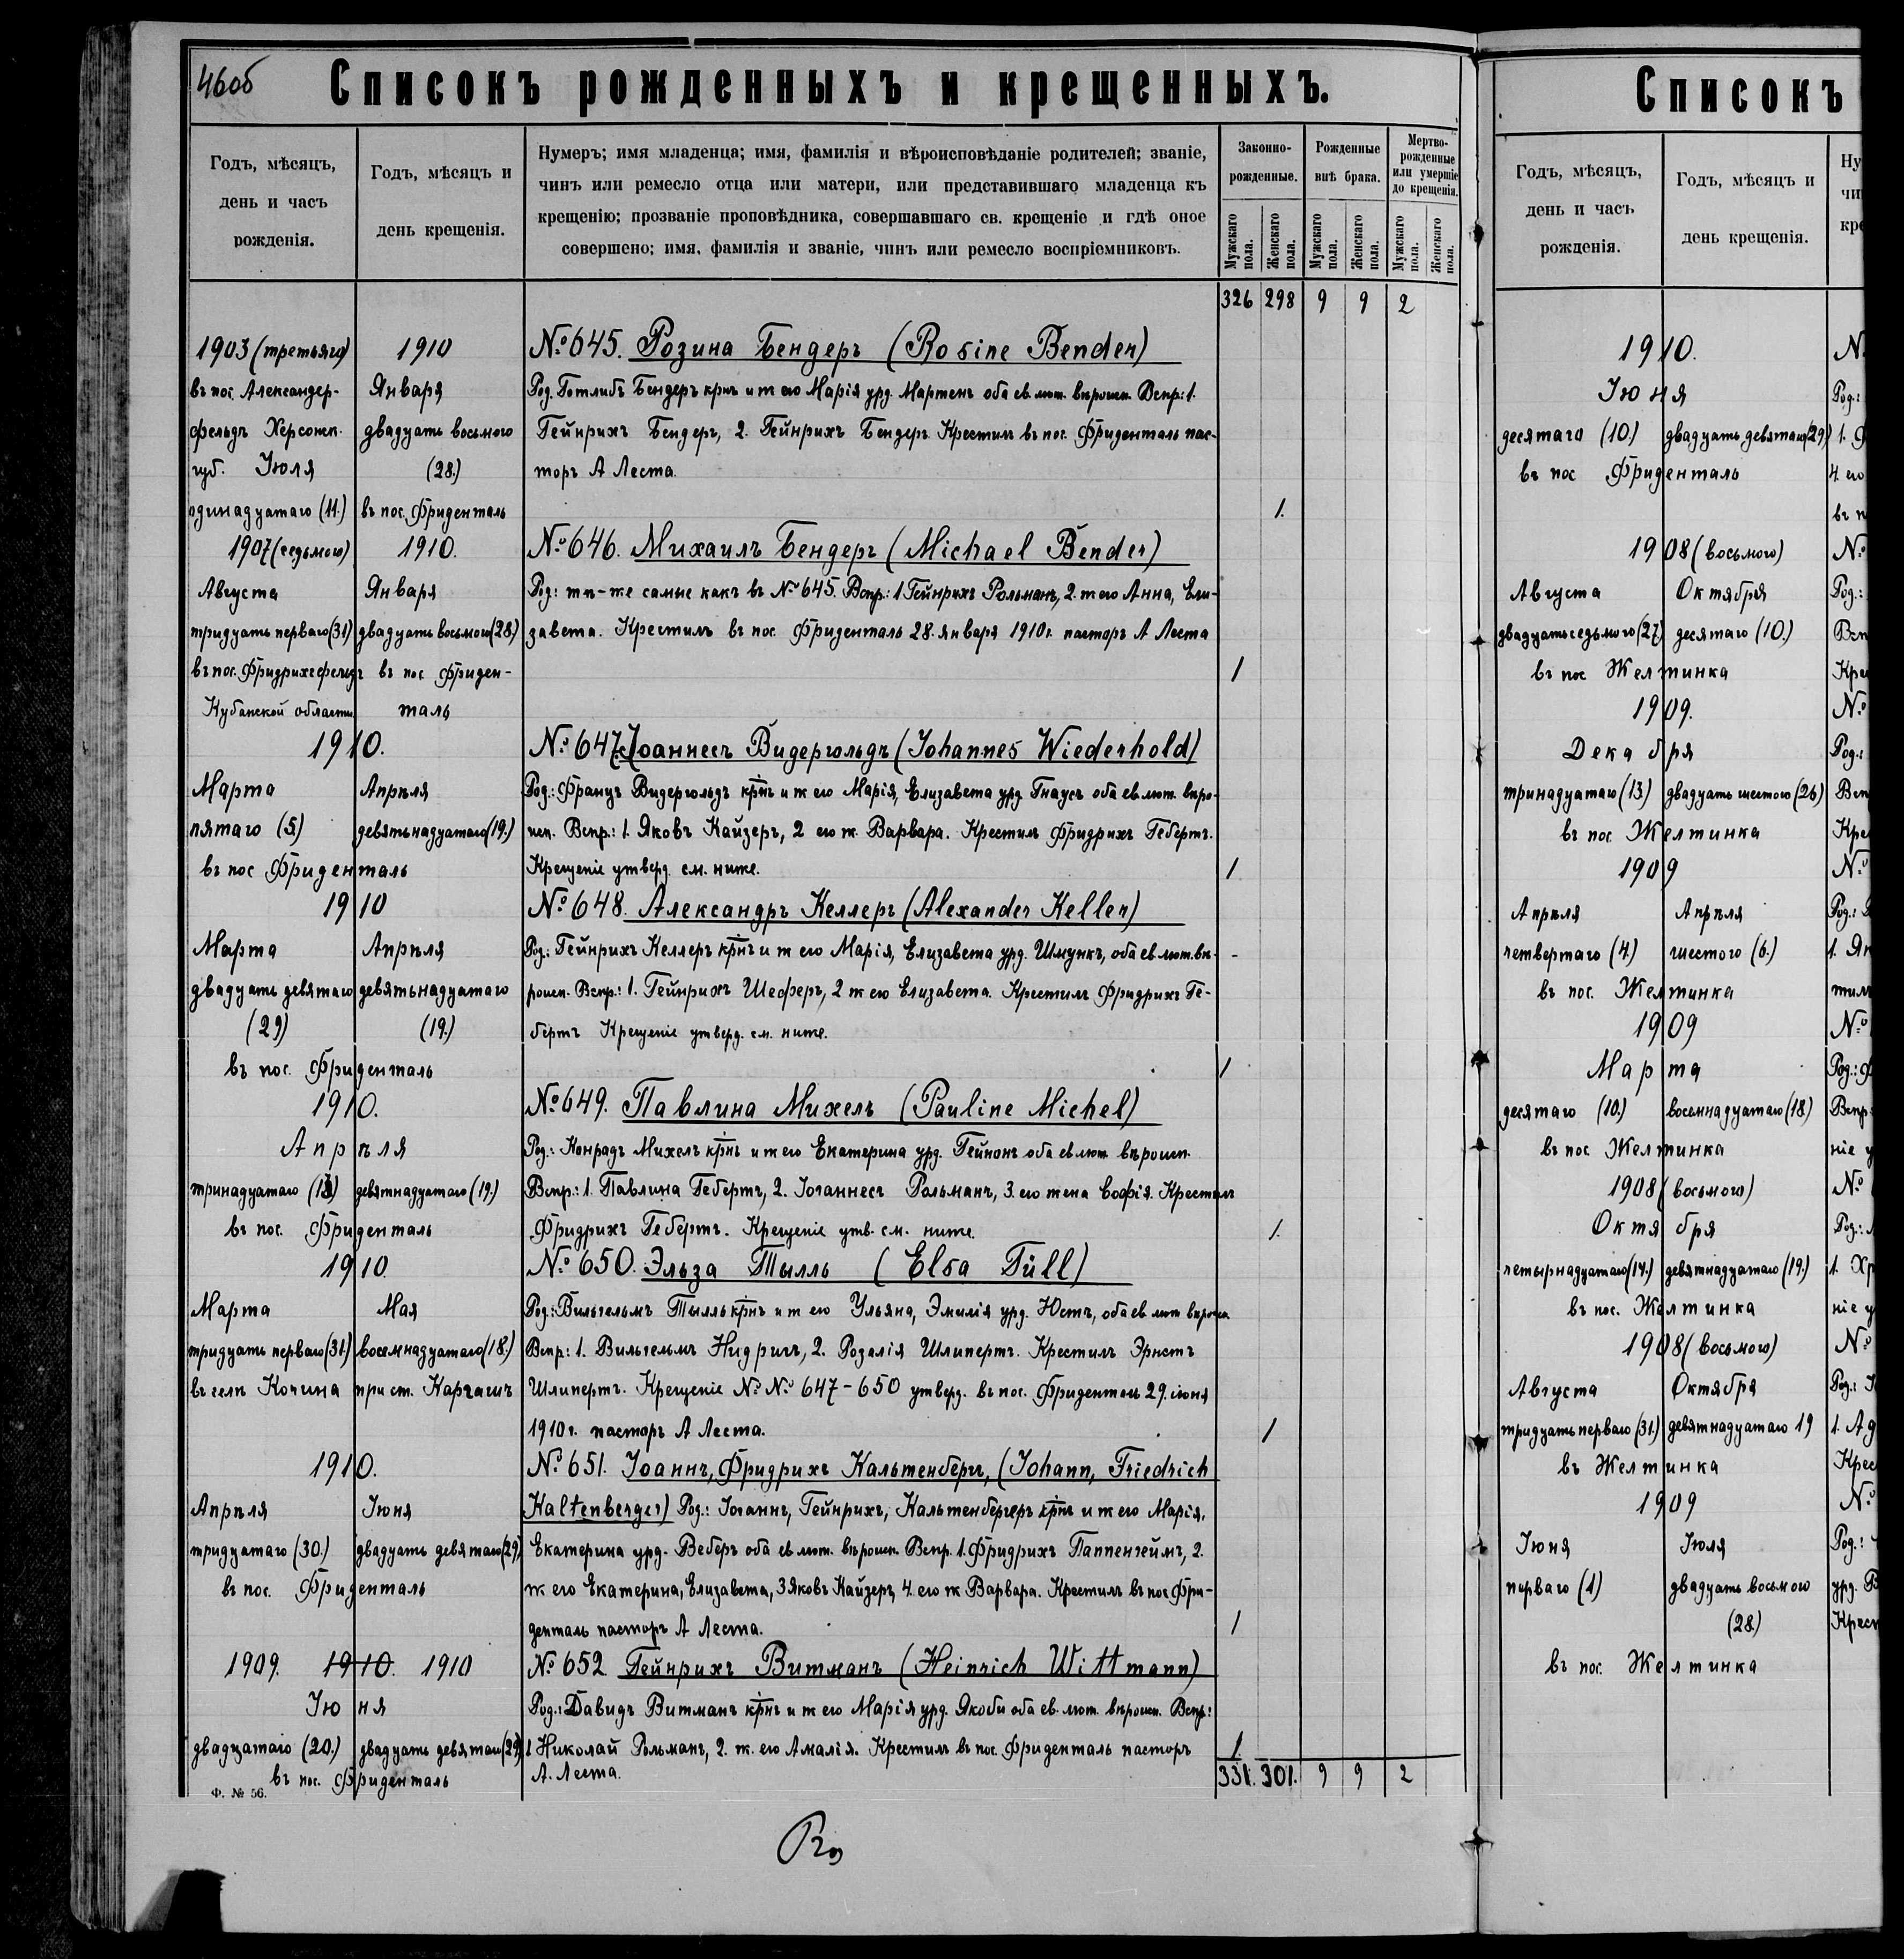 46об
Списокъ рожденныхъ и крещенныхъ.
Годъ, мѣсяцъ, день и часъ рожденія.
Годъ, мѣсяцъ и день крещенія.
Нумеръ; имя младенца; имя, фамилія и вѣроисповѣданіе родителей; званіе,
чинъ или ремесло отца или матери, или представившаго младенца къ
крещенію; прозваніе проповѣдника, совершавшаго св. крещеніе и гдѣ оное
совершено; имя, фамилія и званіе, чинъ или ремесло воспріемниковъ.
Законно-рожденные.
Рожденные внѣ брака.
Мертво-рожденные или умершіе до крещенія.
Мужскаго пола. Женскаго пола. Мужскаго пола. Женскаго пола. Мужскаго пола. Женскаго пола.
326 298 9 9 2
1903 (третьяго) 1910 №645. Розина Бендеръ (Rosine Bender)
въ пос. Александер- Января Род. Готлибъ Бендеръ крнъ и ж его Марія урд. Мартенъ оба ев. лют. вѣроисп. Вспр: 1.
фельдъ Херсонск. двадцать восьмого Гейнрихъ Бендеръ, 2. Гейнрихъ Бендеръ Крестилъ въ пос. Фриденталь пас-
губ. Іюля (28.) торъ А Леста.
одинадцатаго (11.) въ пос. Фриденталь 1.
1907 (седьмого) 1910. №646. Михаилъ Бендеръ (Michael Bender)
Августа Января Род: тѣ-же самые какъ въ №645. Вспр.: 1 Гейнрихъ Рольманъ, 2. ж его Анна, Ели-
тридцать перваго (31) двадцать восьмого (28.) завета. Крестилъ въ пос. Фриденталь 28. января 1910 г. пасторъ А Леста
въ пос. Фридрихсфельдъ въ пос Фриден- 1
Кубанской области таль
1910. №647. Іоаннесъ Видергольдъ (Johannes Wiederhold)
Марта Апрѣля Род.: Францъ Видергольдъ крнъ и ж его Марія, Елизавета урд Гнаусъ оба ев лют. вѣро-
пятаго (5.) девятьнадцатаго (19.) исп. Вспр.: 1. Яковъ Кайзеръ, 2 его ж. Варвара. Крестилъ Фридрихъ Гебертъ.
въ пос Фриденталь Крещеніе утверд. см. ниже. 1
1910 №648. Александръ Келлеръ (Alexander Keller)
Марта Апрѣля Род.: Гейнрихъ Келлеръ крнъ и ж его Марія, Елизавета урд. Шмункъ, оба ев лют. вѣ-
двадцать девятаго девятьнадцатаго роисп. Вспр.: 1. Гейнрихъ Шеферъ, 2 ж его Елизавета. Крестилъ Фридрихъ Ге-
(29) (19.) бертъ Крещеніе утверд. см. ниже.
въ пос. Фриденталь 1
1910. №649. Павлина Михель (Pauline Michel)
Апрѣля Род.: Конрадъ Михель крнъ и ж его Екатерина урд. Гейнонъ оба ев лют вѣроисп.
тринадцатаго (13) девятнадцатаго (19.) Вспр.: 1. Павлина Гебертъ, 2. Іоганнесъ Рольманъ, 3. его жена Софія. Крестилъ
въ пос. Фриденталь Фридрихъ Гебертъ. Крещеніе утв. см. ниже. 1.
1910. №650. Эльза Тылль (Elsa Tüll)
Марта Мая Род.: Вильгельмъ Тылль крнъ и ж его Ульяна, Эмилія урд. Юстъ, оба ев лют вѣроисп.
тридцать перваго (31.) восемнадцатаго (18.) Вспр: 1. Вильгельмъ Нидригъ, 2. Розалія Шлипертъ. Крестилъ Эрнстъ
въ селѣ Копина при ст. Каргашъ Шлипертъ. Крещеніе №№ 647-650 утверд. въ пос. Фриденталь 29. іюня
1910 г. пасторъ А Леста. 1
1910. №651. Іоаннъ, Фридрихъ Кальтенбергъ, (Johann, Friedrich
Апрѣля Іюня Kaltenberger) Род.: Іоганнъ, Гейнрихъ, Кальтенбергеръ крнъ и ж его Марія,
тридцатаго (30.) двадцать девятаго (29) Екатерина урд. Веберъ оба ев лют. вѣроисп. Вспр. 1. Фридрихъ Паппенгеймъ, 2.
въ пос. Фриденталь ж его Екатерина, Елизавета, 3 Яковъ Кайзеръ, 4. его ж Варвара. Крестилъ въ пос Фри-
денталь пасторъ А Леста. 1
1909. 1910. 1910 №652 Гейнрихъ Витманъ (Heinrich Wittmann)
Іюня Род.: Давидъ Витманъ крнъ и ж его Марія урд. Якоби оба ев. лют. вѣроисп. Вспр:
двадцатаго (20.) двадцать девятаго (29) 1 Николай Рольманъ, 2. ж. его Амалія. Крестилъ въ пос. Фриденталь пасторъ 1.
въ пос. Фриденталь А. Леста.
331. 301. 9 9 2
Ф. № 56.
Списокъ
Годъ, мѣсяцъ, день и часъ рожденія.
Годъ, мѣсяцъ и день крещенія.
1910.
Іюня
десятаго (10.) двадцать девятаго (29.)
въ пос Фриденталь
1908 (восьмого)
Августа Октября
двадцать седьмого (27) десятаго (10.)
въ пос Желтинка
1909.
Декабря
тринадцатаго (13.) двадцать шестого (26)
въ пос. Желтинка
1909
Апрѣля Апрѣля
четвертаго (4.) шестого (6.)
въ пос. Желтинка
1909
Марта
десятаго (10.) восемнадцатаго (18.)
въ пос Желтинка
1908 (восьмого)
Октября
четырнадцатаго (14.) девятнадцатаго (19.)
въ пос. Желтинка
1908 (восьмого)
Августа Октября
тридцать перваго (31.) девятнадцатаго 19
въ Желтинка
1909
Іюня Іюля
перваго (1) двадцать восьмого
(28.)
въ пос. Желтинка